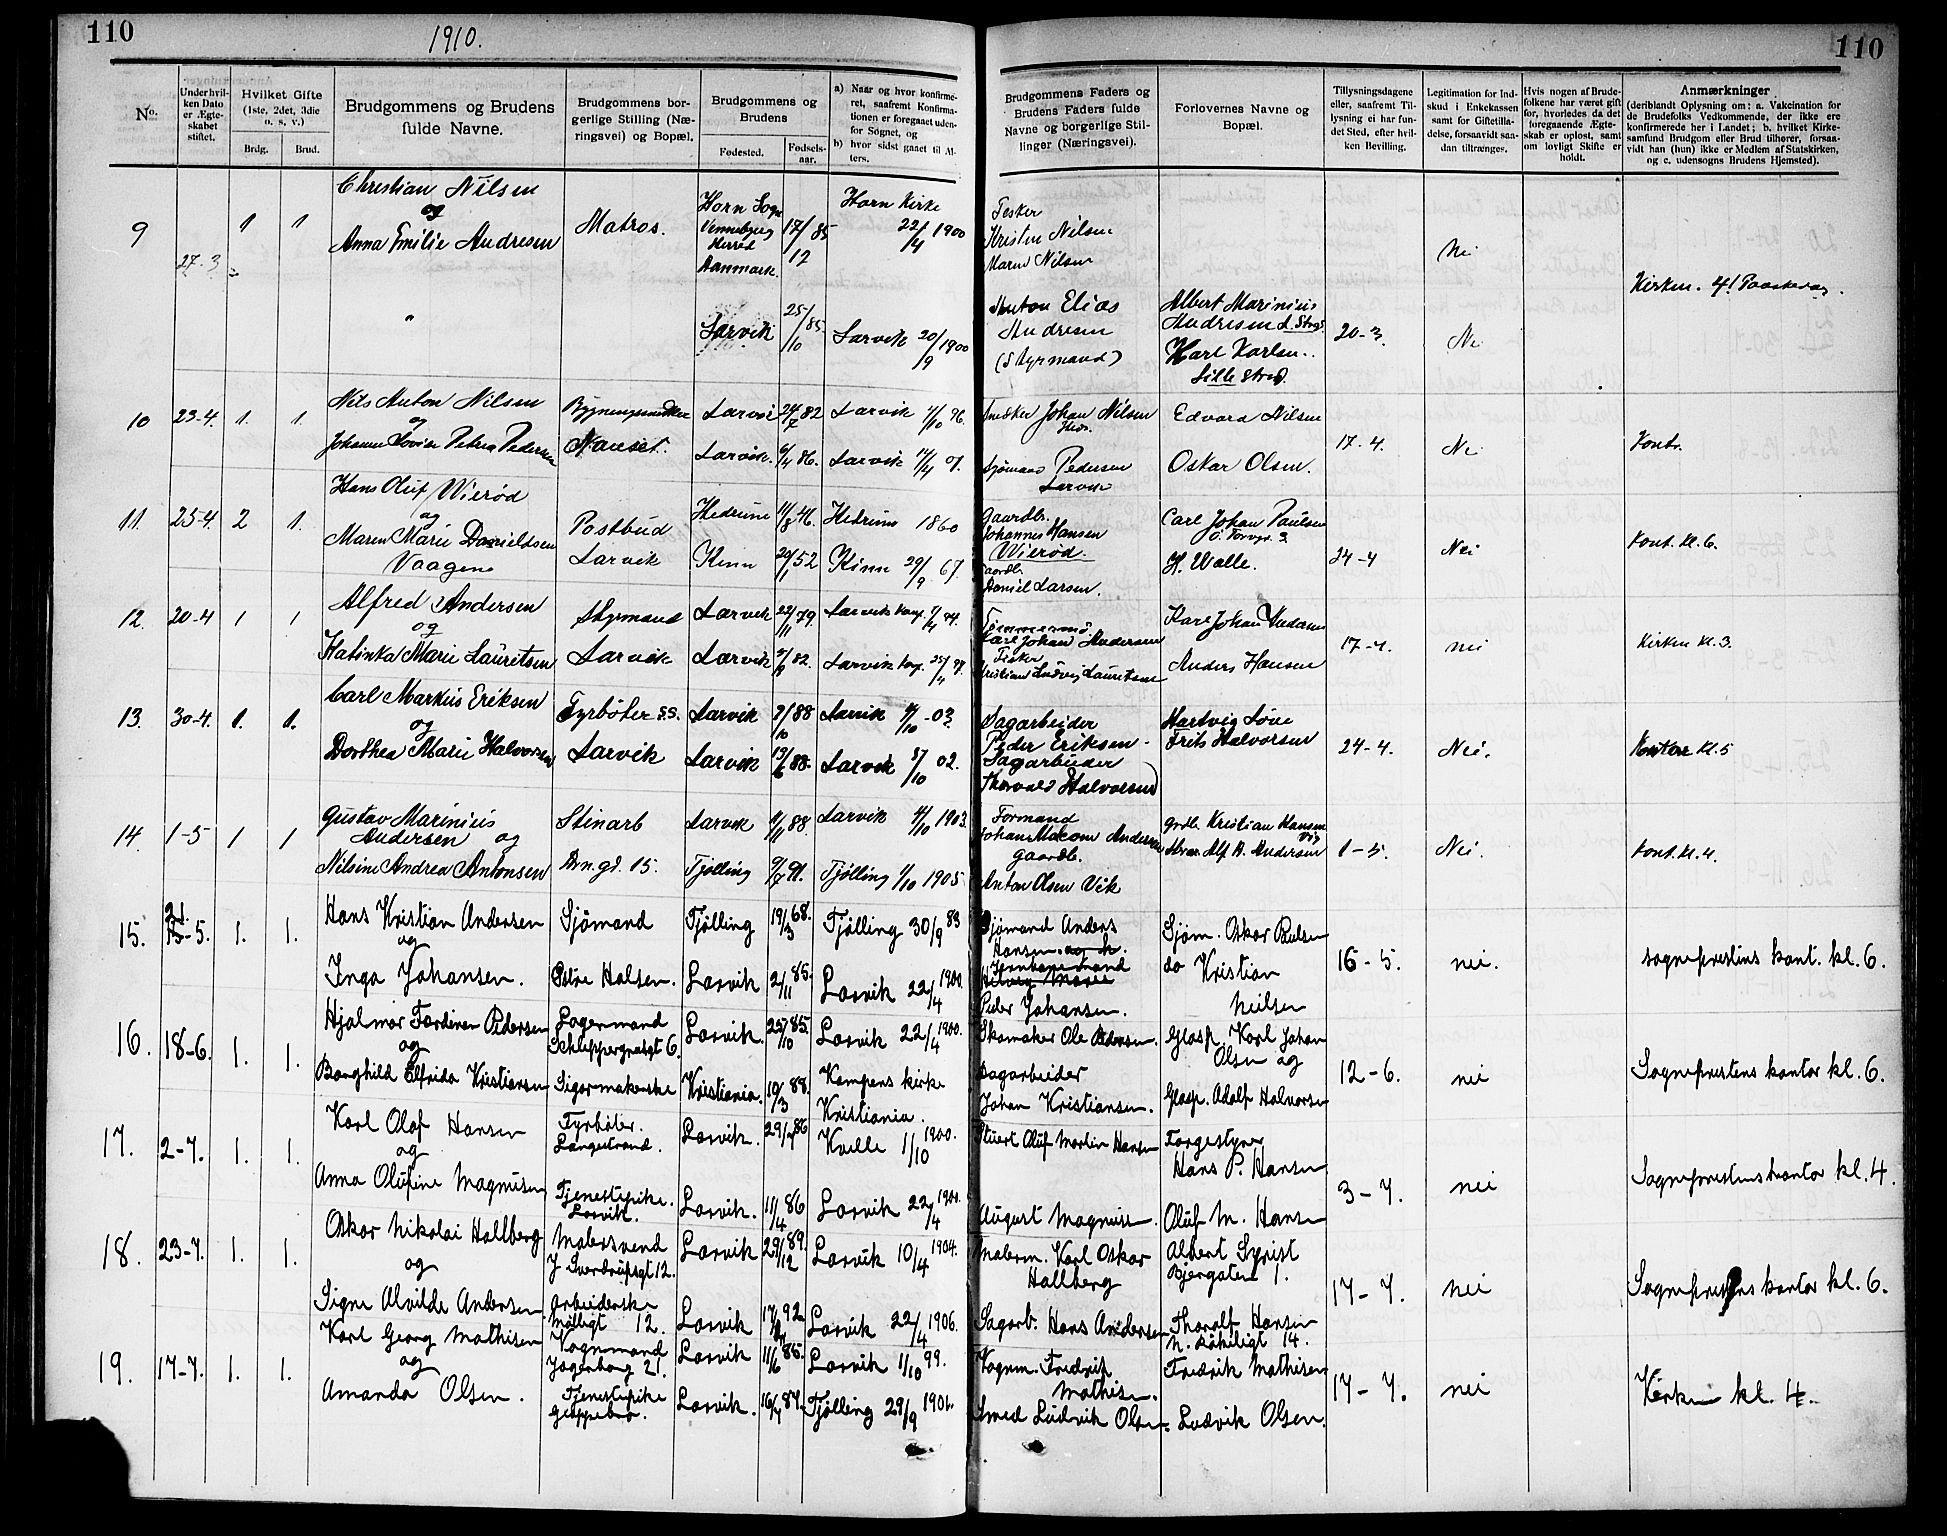 110
1910.
110
No.
Under hvilken Dato er Ægteskabet stiftet.
Hvilket Gifte
(1ste, 2det, 3die o. s. v.)
Brdg.
Brud.
Brudgommens og Brudens fulde Navne.
Brudgommens borgerlige Stilling (Næringsvei) og Bopæl.
Brudgommens og Brudens
Fødested.
Fødselsaar.
a) Naar og hvor konfirmeret, saafremt Konfirmationen er foregaaet udenfor Sognet, og
b) hvor sidst gaaet til Alters.
Brudgommens Faders og Brudens Faders fulde Navne og borgerlige Stillinger (Næringsvei).
Forlovernes Navne og Bopæl.
Tillysningsdagene eller, saafremt Tillysning ei har fundet Sted, efter hvilken Bevilling.
Legitimation for Indskud i Enkekassen samt for Giftetilladelse, forsaavidt saadan tiltrænges.
Hvis nogen af Brudefolkene har været gift før, hvorledes da det foregaaende Ægteskab er opløst, samt om lovligt Skifte er holdt.
Anmærkninger
(deriblandt Oplysning om: a. Vakcination for de Brudefolks Vedkommende, der ikke ere konfirmerede her i Landet; b. hvilket Kirkesamfund Brudgom eller Brud tilhører, forsaavidt han (hun) ikke er Medlem af Statskirken, og c. udensogns Brudens Hjemsted).
9 27-3 1 1 Christian Nilsen
og
Anna Emilie Andresen
Matros.
Horn Sogn
Vennebjerg
Herred
Danmark.
17/12 85
Horn Kirke
22/4 1900
Fisker
Kristen Nilsen
Maren Nilsen
Nei
Kirken. 4!
Larvik 25/10 85 Larvik 20/9 1900
Anton Elias
Andresen
(Styrmand)
Albert Marinius
Andresen
Karl Karlsen.
Lille Strd.
20-3.
10 23-4. 1. 1. Nils Anton Nilsen
og
Petrea Pedersen
Larvik 24/7 82 Larvik 1/10 96.
Larvik. 6/4 86. Larvik 14/4 01.
Snedker Johan Nilsen
Sjømand Pedersen
Larvik
Edvard Nilsen
Oskar Olsen.
17-4.
Kontr.
11. 25-4. 2 1. Hans Oluf Wierød
og
Maren Marie Danieldsen
Vaagene
Postbud
Larvik
Hedrum 11/8 46. Hedrum 1860
Kinn 20/1 52 Kinn 29/9 67.
Gaardb.
Johannes Hansen
Wierød.
Gaardb.
Daniel Larsen.
Carl Johan Paulsen
H. Walle.
24-4
Nei
Kont. Kl. 6.
12. 20-4 1 1 Alfred Andersen
og
Katinka Marie Lauritsen
Styrmand
Larvik
Larvik 22/11 79.
Larvik
Karl Johan Andersen
Fisker
Kristian Ludvig Lauritsen
Anders Hansen
17-4.
nei
Kirken Kl. 3.
13. 30-4. 1. 1. Carl Markus Eriksen
og
Dorthea Marie Halvorsen
Fyrbøter s.s.
Larvik
Larvik 9/10 88 Larvik 4/10 - 03.
Larvik 13/6 88. Larvik 5/10 02.
Sagarbeider
Peder Eriksen
Sagarbeider
Thorvald Halvorsen
Hartvig Løve
Frits Halvorsen
24-4.
Nei.
Kontor kl. 5
14. 1-5 1 1 Gustav Marinius
Andersen og
Nilsine Andrea Antonsen
Stenarb
Brn. gd. 15.
Larvik 1/11 88 Larvik 4/10 1903.
Tjølling 9/7 91. Tjølling 1/10 1905
Formand
Johan Andersen
Gaardb.
Anton Olsen Vik
Grdb. Kristian Hansen
Vig
Alf A. Andersen
1-5.
Nei.
Kont. kl. 4.
15. 21-5. 1. 1. Hans Kristian Andersen
og
Inga Johansen.
Sjømand
Østre Halsen.
Tjølling 19/3 68. Tjølling 30/9 83
Larvik 2/11 85. Larvik 22/4 1900.
Sjømand Anders
Hansen
Peder Johansen.
Sjøm. Oskar Paulsen
do Kristian
Nielsen
16-5.
nei.
sogneprestens kont. kl. 6.
16. 18-6. 1. 1. Hjalmar Ferdinan Pedersen
og
Borghild Elfrida Kristiansen
Lagermand
Skippergadgt 6.
Sigarmakerske
Larvik. 25/10 85. Larvik 22/4 1900.
Kristiania. 10/3 88. Kampens kirke
Kristiania.
Skomaker Ole Pedersen.
Sagarbeider
Johan Kristiansen.
Glasp. Karl Johan
Olsen og
Glasp. Adolf Halvorsen
12-6.
nei
Sogneprestens kontor kl. 6.
17. 2-7. 1. 1. Karl Olaf Hansen
og
Anna Olufine Magnusen
Fyrbøter.
Langestrand.
Tjenestepike.
Larvik.
Larvik. 29/7 86 Kvelle 1/10 1900.
Larvik. 11/4 86 Larvik 22/4 1900.
Stuert Oluf Martin Hansen
August Magnusen.
Hans P. Hansen
Oluf M. Hansen
3-7.
nei
Sogneprestens kontor kl. 4.
18. 23-7. 1. 1. Oskar Nikolai Hallberg
og
Signe Alvilde Andersen
Malersvend
J Sverdrupsgt 12.
Arbeiderske
Møllegt 12.
Larvik 29/12 89. Larvik 10/4 1904.
Larvik 17/ 92. Larvik 22/4 1906.
Malerm. Karl Oskar
Hallberg
Sagarb. Hans Andersen
Albert Syrist
Bjergaten 1.
Tharalf Hansen
14.
17-7.
nei
Sogneprestens kontor kl. 6.
19. 17-7. 1. 1. Karl Georg Mathisen
og
Amanda Olsen.
Vognmand
Jegerborg 21.
Tjenestepike
Larvik 11/6 85. Larvik 1/10 99.
Larvik. 16/7 87. Tjølling 29/9 1901.
Vognm. Fredrik
Mathisen.
Smed Ludvik Olsen.
Fredrik Mathisen
Ludvik Olsen.
17-7.
nei
Kirken kl. 4.